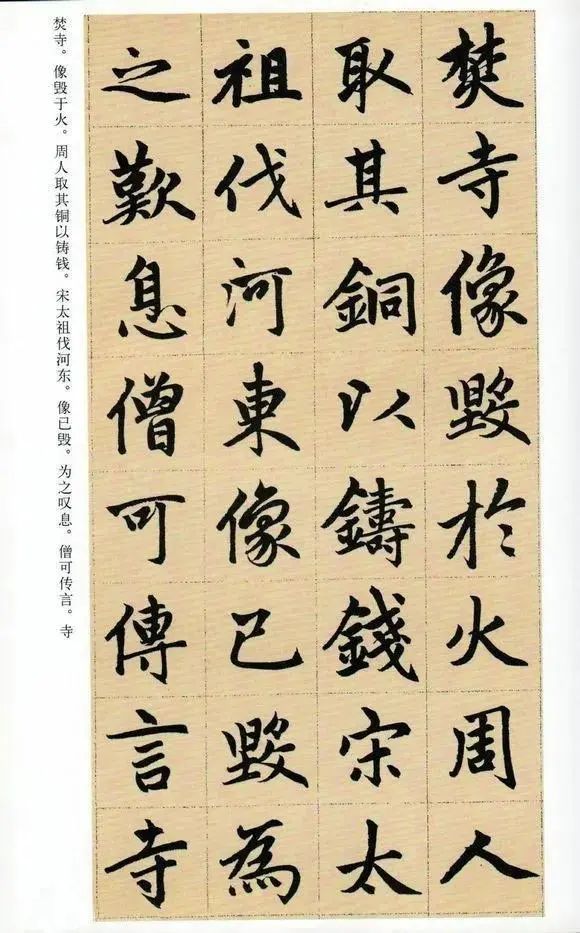 焚寺像毀於火周人
取其銅以鑄錢宋太
祖伐河東像已毀為
之歎息僧可傳言寺
焚寺。像毁于火。周人取其铜以铸钱。宋太祖伐河东。像已毁。为之叹息。僧可传言。寺